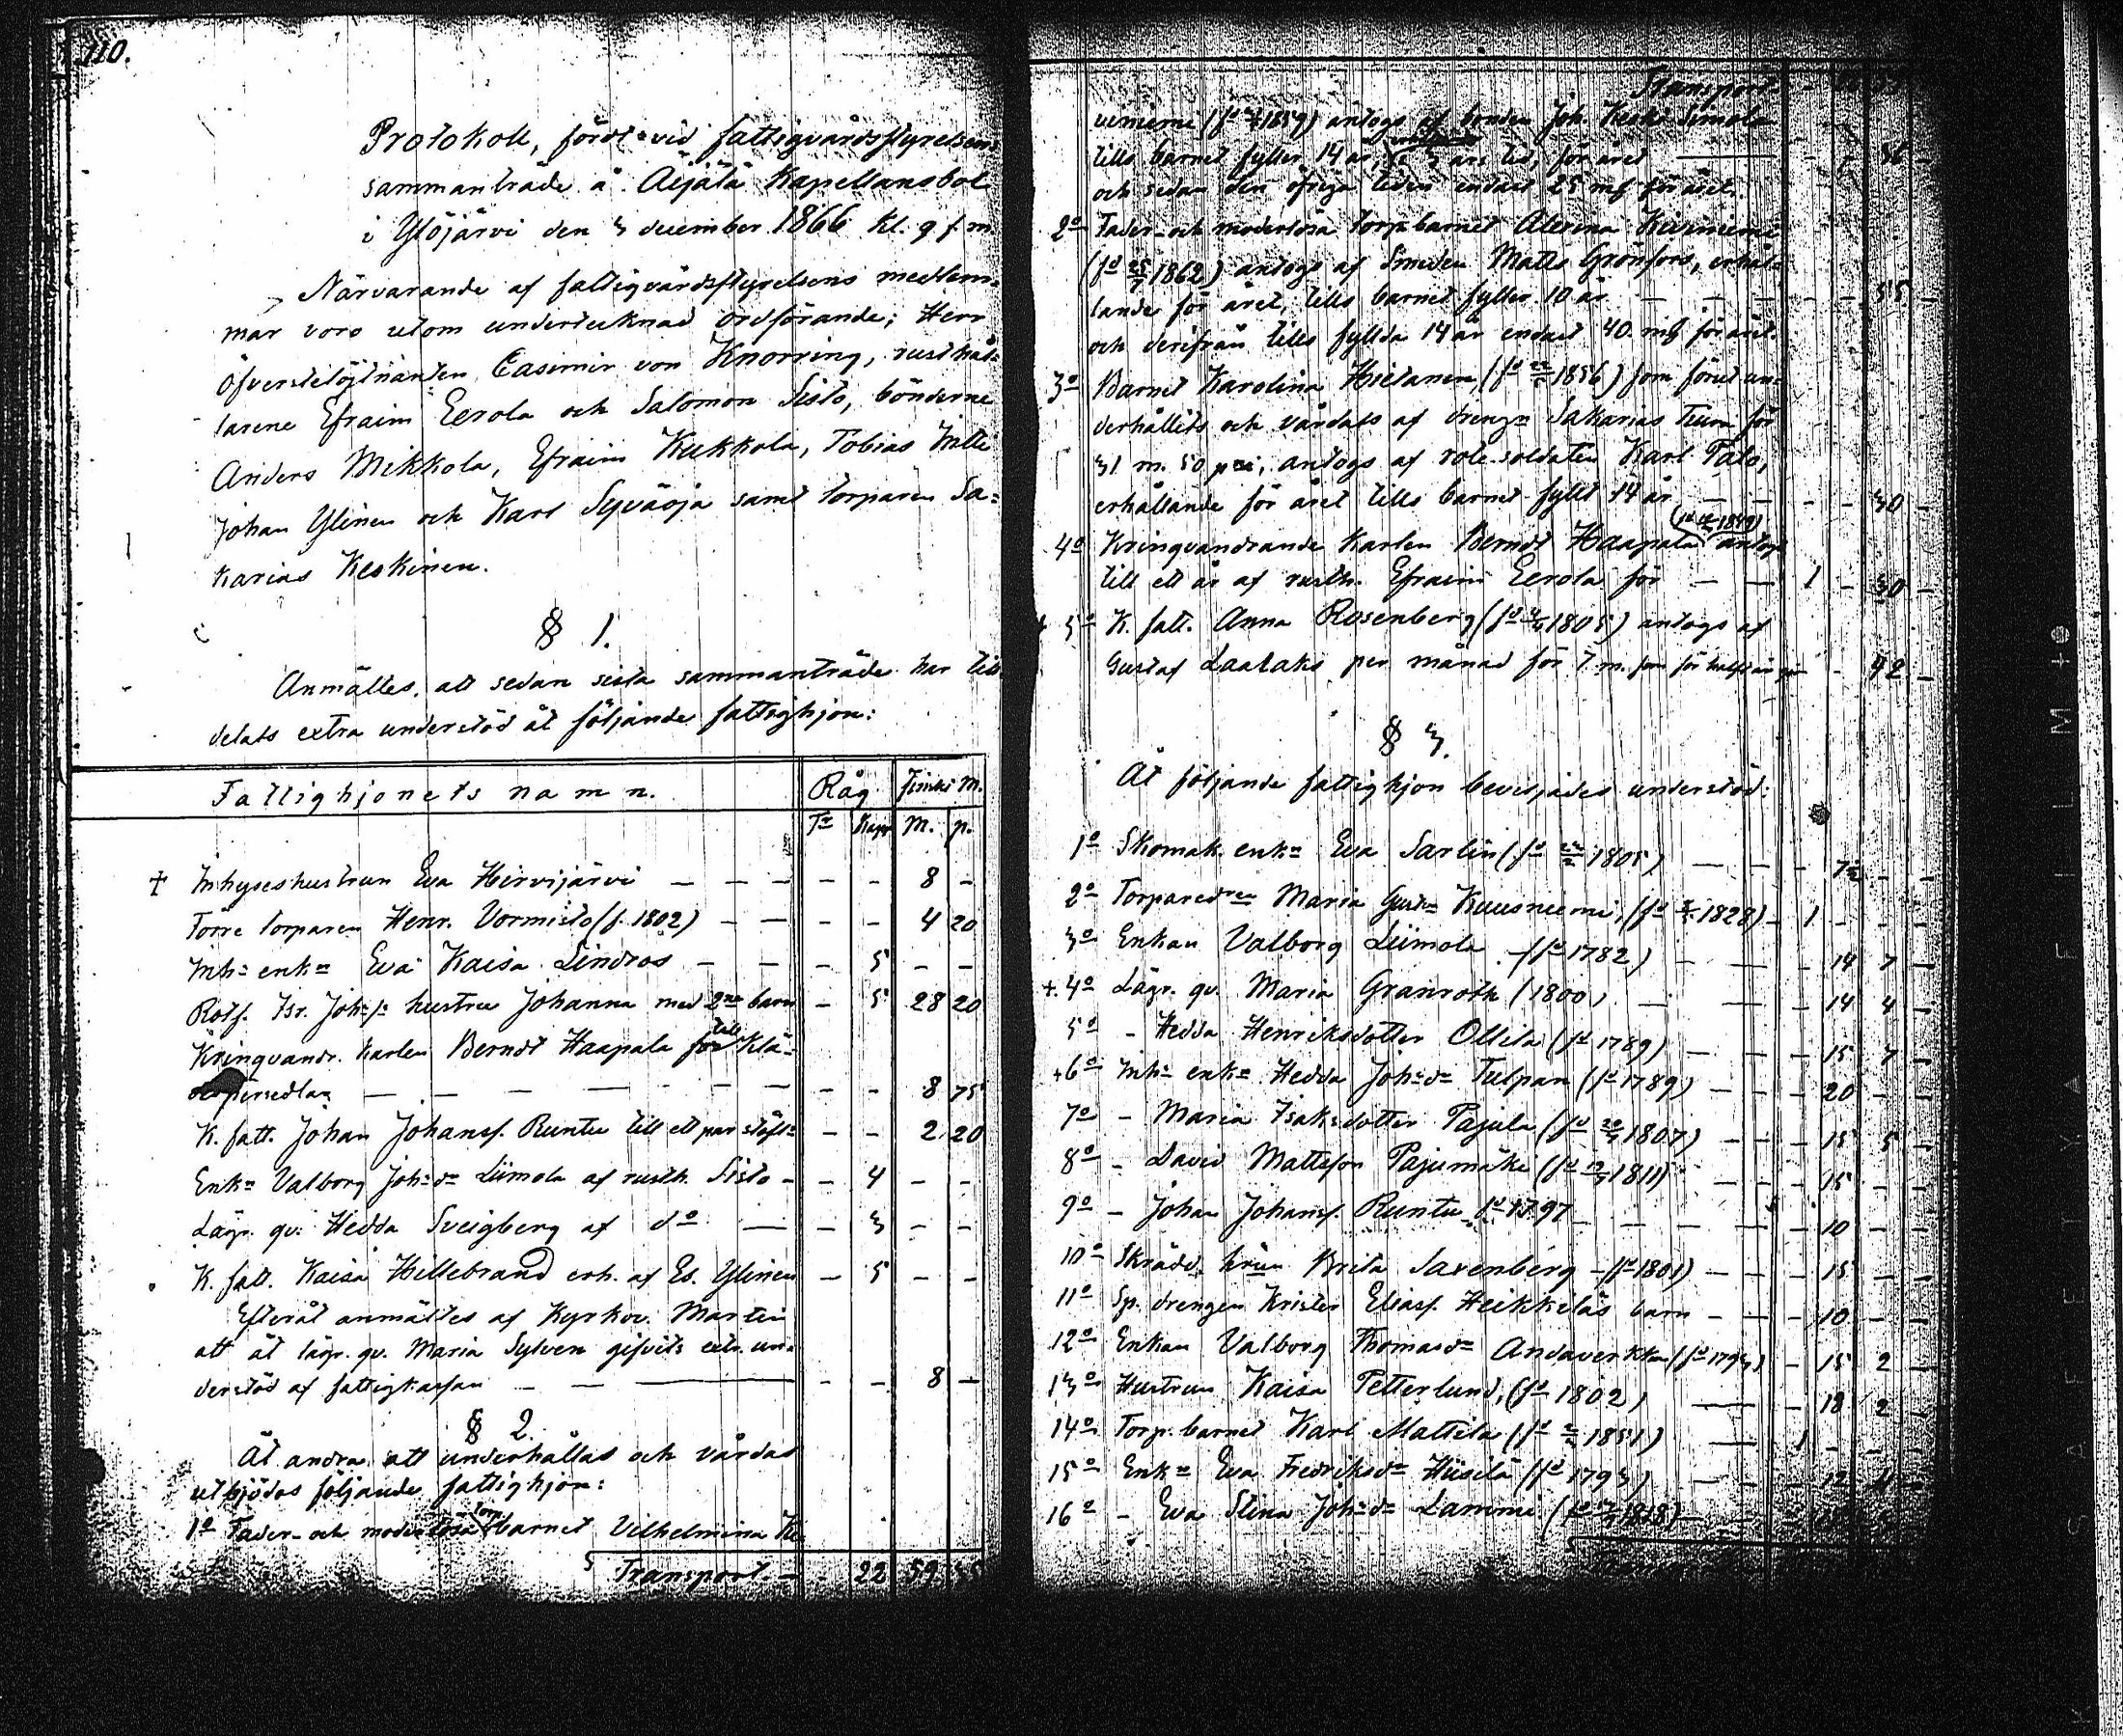 110.
Protokoll, fördt vid fattigvårdsstyrelsens
sammanträde å Äijälä Kapellansbol
i Ylöjärvi den 3 december 1866 kl. 9 f.m.
Närvarande af fattigvårdsstyrelsens medlem-
mar voro utom undertecknad ordförande; Herr
Öfverstelöjtnanten Casimir von Knorring, rusthål-
larene Efraim Eerola och Salomon Sisto, bönderne
Anders Mikkola, Efraim Kukkola, Tobias Mili
Johan Ylinen och Karl Syväoja samt torparen Sa-
karias Keskinen.
§ 1.
Anmältes, att sedan sista sammanträde har till
delats extra understöd åt följande fattighjon:
Fattighjonets namn. Råg Finski M.
Tr Kapp M. p.
+ Inhyseshustrun Eva Hirvijärvi — — — - - 8 -
Förre torparen Henr. Vormisto (f. 1802) — — - - 4 20
Inhs enkn Eva Kaisa Lindros — — - 5 - -
Rotf. Isr. Johsfs hustru Johanna med 2ne barn - 5 28 20
Kringvandr. karlen Berndt Haapala för till Klä-
persedlar — — — — - - 8 75
K. fatt. Johan Johansf. Runtu till ett par stöfl - - 2 20
Enkn Valborg Johsdr Liimola af rusth. Sisto - - 4 - -
Lägr. qv. Hedda Sveigberg af do — - 3 - -
K. fatt. Kaisa Hillebrand erh. af Es. Ylinen - 5 - -
Efteråt anmältes af Kyrkov. Martin
att åt lägr. qv. Maria Sylven gifvits extr. un-
derstöd af fattigkassan — — - - 8 -
§ 2.
Åt andra att underhållas och vårdas
utbjödos följande fattighjon:
1o Fader- och moderlösa torp barnet Vilhelmina Ki
Transport — - 22 59
Transport
viniemi (fd 1859) antogs af bonden Joh. Keski Simola
tills barnet fyller 14 år, 3 års tid, för året — - - 36 -
och sedan den öfriga tiden endast 25 mk för året.
2o Fader- och moderlösa torp barnet Alexina Kiviniemi
(fd 25/7 1862) antogs af Smeden Matts Grönfors, erhål-
lande för året, tills barnet fyller 10 år — — — - - 55 -
och derifrån tills fyllda 14 år endast 40 mk för året.
3o Barnet Karolina Hietanen, (fd 1856) som förut un-
derhållits och vårdats af drengn Sakarias Tuura för
31 m. 50 pni, antogs af rote soldaten Karl Palo,
erhållande för året tills barnet fyllt 14 år — — - - 30 -
(fd 1849)
4o Kringvandrande karlen Berndt Haapala antogs
till ett år af rusth. Efraim Eerola för — — 1 - 30 -
+ 5o K. fatt. Anna Rosenberg (fd 1805) antogs af
Gustaf Laalaks per månad för 7 m. som för halft år gör - 42 -
§ 3.
Åt följande fattighjon beviljades understöd:
1o Skomak. enkn Eva Sarlin (fd 1805) — — - 7½ - -
2o Torparedrn Maria Gustn Kuusniemi, (fd 1828) - 1 - - -
3o Enkan Valborg Liimola (fd 1782) — — - 14 7 -
+ 4o Lägr. qv. Maria Granroth (1800) — — - 14 4 -
5o - Hedda Henriksdotter Ollila (fd 1789) — — - 15 7 -
+ 6o Inhs enkn Hedda Johsdr Tulpan (fd 1789) — - 20 - -
7o - Maria Isaksdotter Pajula (fd 1807) — - 15 5 -
8o - David Mattsson Pajumäki (fd 1811) — - 15 - -
9o - Johan Johansf. Runtu fd 1797 — — - 10 - -
10o Skrädd. hrun Brita Saxenberg - (fd 1801) — - 15 - -
11o Sp. drengen Krister Eliasf. Heikkiläs barn — - 10 - -
12o Enkan Valborg Thomasdr Andaverkka (fd 1793) - 15 2 -
13o Hustrun Kaisa Petterlund, (fd 1802) — - 18 2 -
14o Torp. barnet Karl Mattila (fd 1851) — 1 - - -
15o Enkn Eva Fredriksdr Hiisilä (fd 1793) — - 12 4 -
16o - Eva Stina Johsdr Lammi (fd 1818) —
SAFETY FILM